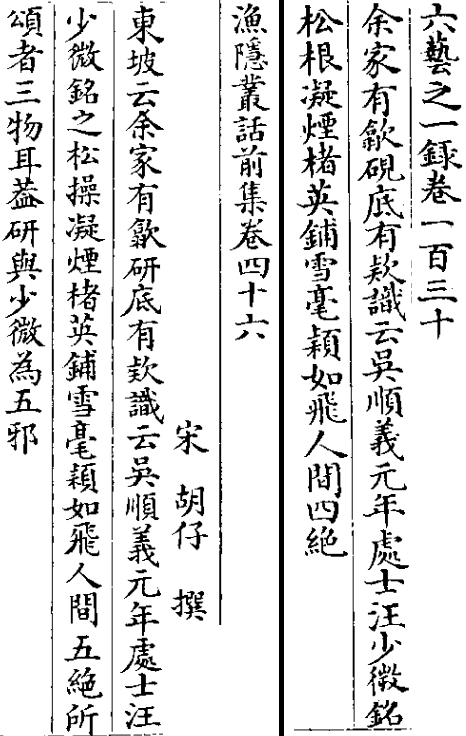 六藝之一録卷一百三十
余家有歙硯底有欵識云吳順義元年處士汪少微銘
松根凝煙楮英鋪雪毫穎如飛人間四絶
漁隱叢話前集卷四十六
宋 胡仔 撰
東坡云余家有歙研底有欵識云吳順義元年處士汪
少微銘之松操凝煙楮英鋪雪毫穎如飛人間五絶所
頌者三物耳葢研與少微為五邪